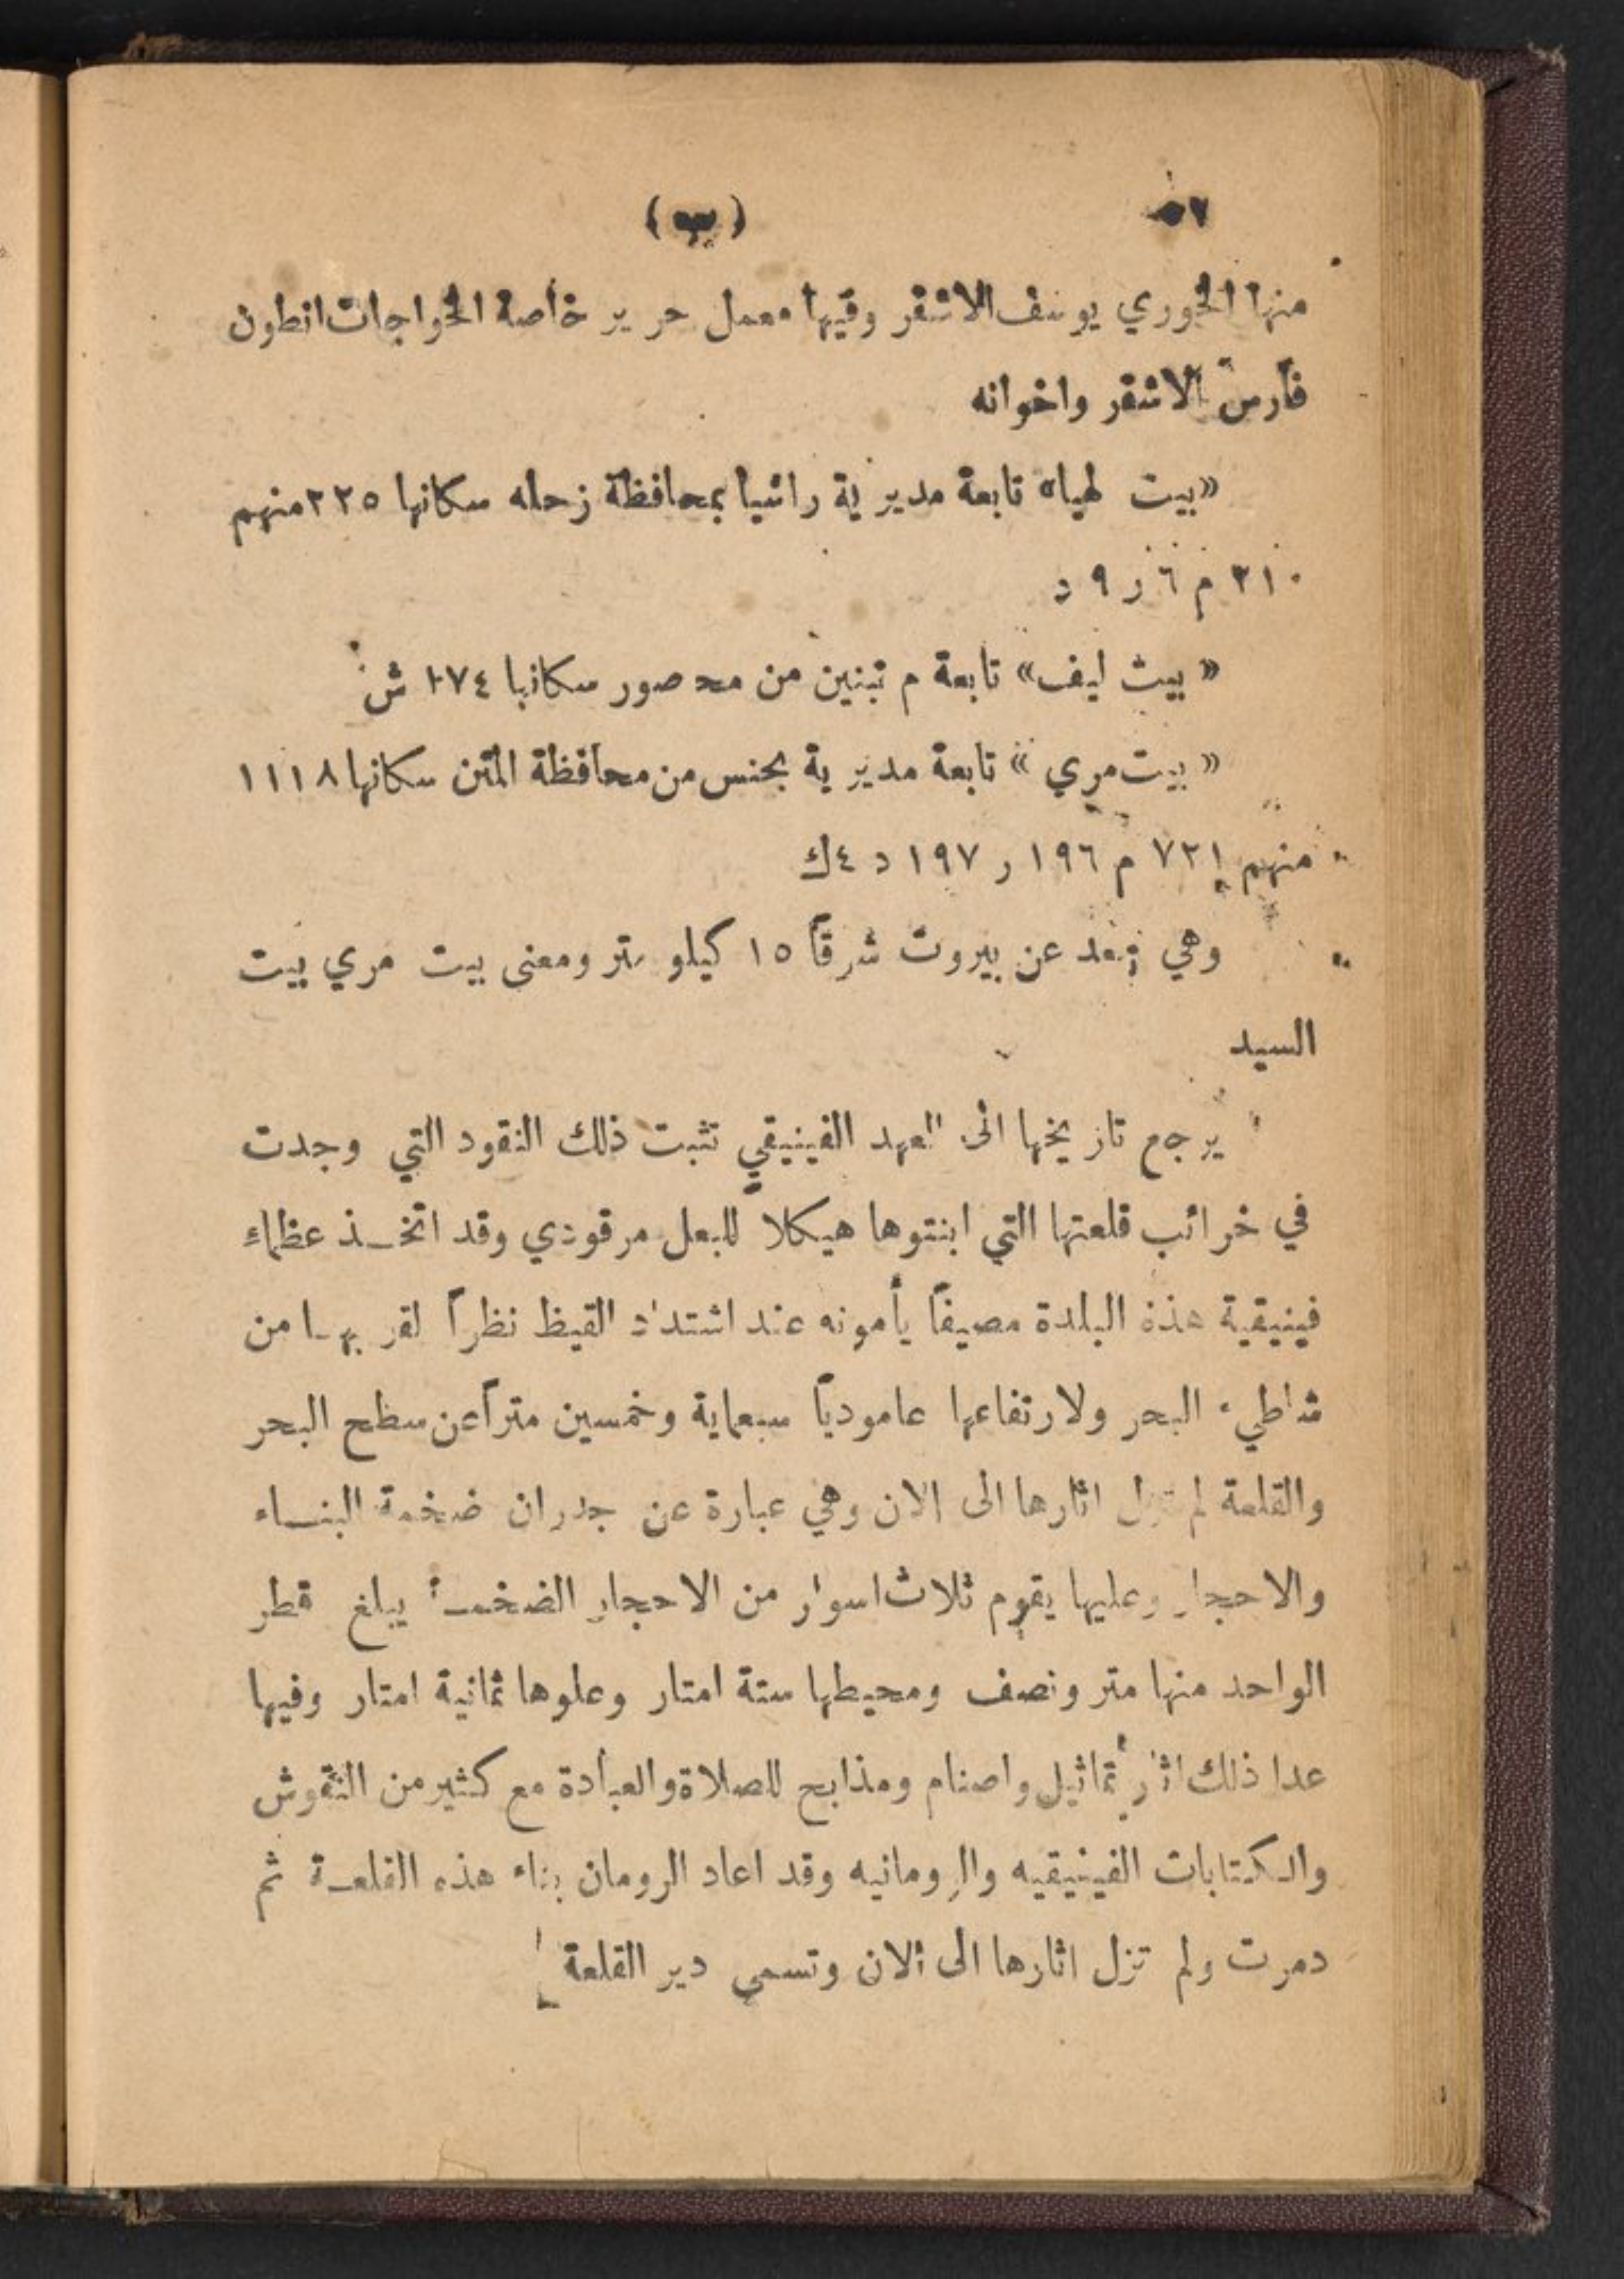 ٥٧ (ب)
منها الخوري يوسف الاشقر وفيها معمل حرير خاصة الخواجات انطون
فارس الاشقر واخوانه
«بيت لهيا» تابعة مديرية راشيا بمحافظة زحله سكانها ٣٢٥ منهم
٣١٠ م ٦ ر ٩ د
« بيت ليف» تابعة م تبنين من مح صور سكانها ٢٧٤ ش
« بيت مري » تابعة مديرية بحنس من محافظة المتن سكانها ١١١٨
منهم ٧٢١ م ١٩٦ ر ١٩٧ د ٤ ك
وهي تبعد عن بيروت شرقاً ١٥ كيلو متر ومعنى بيت مري بيت
السيد
يرجع تاريخها الى العهد الفينيقي تثبت ذلك النقود التي وجدت
في خرائب قلعتها التي ابنتوها هيكلا للبعل مرقودي وقد اتخـذ عظماء
فينيقية هذه البلدة مصيفاً يأمونه عند اشتداد القيظ نظراً لقربهـا من
شاطيء البحر ولارتفاعها عامودياً سبعماية وخمسين متراً عن سطح البحر
والقلعة لم تزل اثارها الى الان وهي عبارة عن جدران ضخمة البنـاء
والاحجار وعليها يقوم ثلاث اسوار من الاحجار الضخمـة يبلغ قطر
الواحد منها متر ونصف ومحيطها ستة امتار وعلوها ثمانية امتار وفيها
عدا ذلك اثار تماثيل واصنام ومذابح للصلاة والعبادة مع كثير من النقوش
والكتابات الفينيقيه والرومانيه وقد اعاد الرومان بناء هذه القلعـة ثم
دمرت ولم تزل اثارها الى الان وتسمى دير القلعة